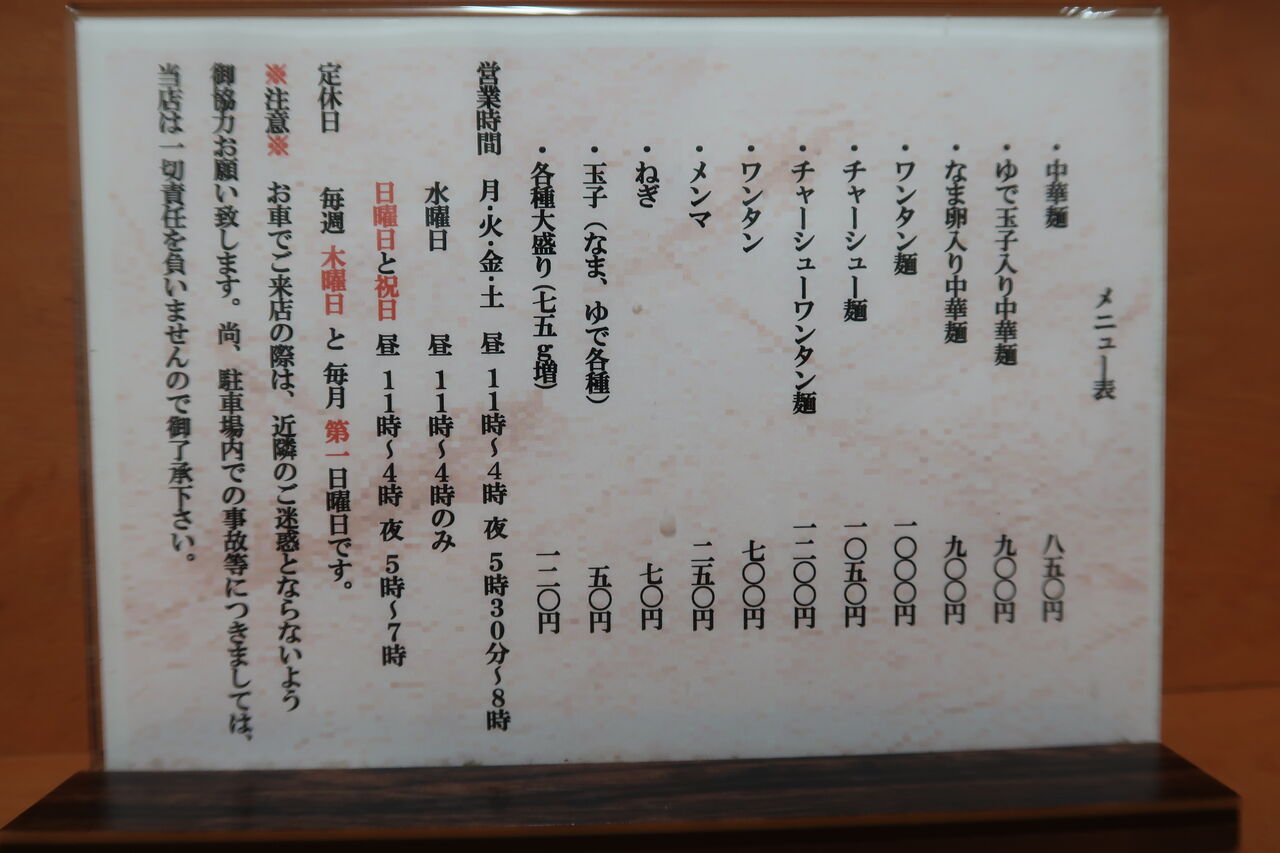 メニュー表
・中華麺 八五〇円
・ゆで玉子入り中華麺 九〇〇円
・なま卵入り中華麺 九〇〇円
・ワンタン麺 一〇〇〇円
・チャーシュー麺 一〇五〇円
・チャーシューワンタン麺 一二〇〇円
・ワンタン 七〇〇円
・メンマ 二五〇円
・ねぎ 七〇円
・玉子（なま、ゆで各種） 五〇円
・各種大盛り（七五ｇ増） 一二〇円
営業時間 月・火・金・土 昼 １１時～４時 夜 ５時３０分～８時
水曜日 昼 １１時～４時のみ
日曜日と祝日 昼 １１時～４時 夜 ５時～７時
定休日 毎週 木曜日 と 毎月 第一日曜日です。
※注意※ お車でご来店の際は、近隣のご迷惑とならないよう
御協力お願い致します。尚、駐車場内での事故等につきましては、
当店は一切責任を負いませんので御了承下さい。